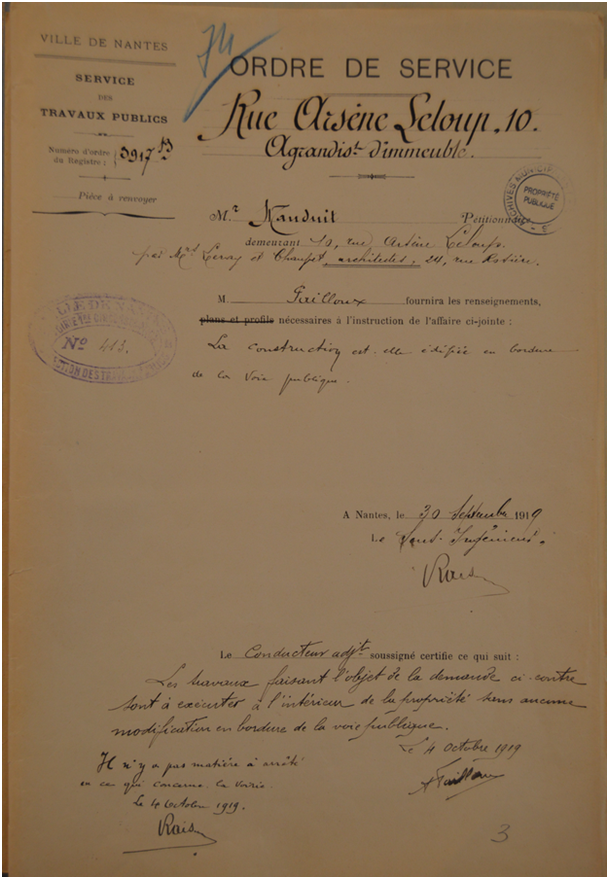 VILLE DE NANTES
SERVICE
DES
TRAVAUX PUBLICS
Numéro d'ordre
du Registre : 3917 B
Pièce à renvoyer
74
ORDRE DE SERVICE
Rue Arsène Leloup. 10.
Agrandist. d'immeuble.
ARCHIVES MUNICIP
PROPRIÉTÉ
PUBLIQUE
Mr Pétitionnaire
demeurant 10, rue Arsène Leloup.
par Mrs Leray et architectes, 24, rue
M. Tailloux fournira les renseignements,
plans et profils nécessaires à l'instruction de l'affaire ci-jointe :
VILLE DE NANTES
No 413.
La construction est-elle édifiée en bordure
de la voie publique.
A Nantes, le 30 Septembre 1919
Le Ingénieur.
Rais
Le Conducteur adjt soussigné certifie ce qui suit :
Les travaux faisant l'objet de la demande ci-contre
sont à exécuter à l'intérieur de la propriété sans aucune
modification en bordure de la voie publique.
Le 4 octobre 1919
Tailloux
Il n'y a pas matière à arrêté
en ce qui concerne la voirie.
le 4 octobre 1919.
Rais
3